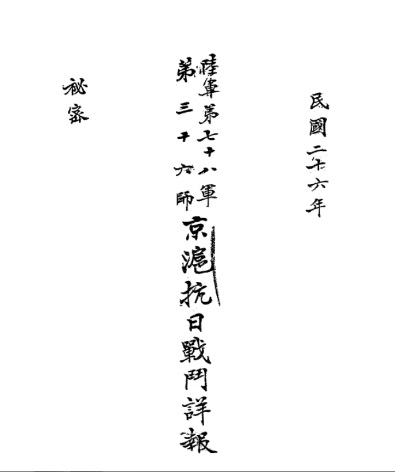 民國二十六年
陸軍第七十八軍
第三十六師
京滬抗日戰鬥詳報
秘密